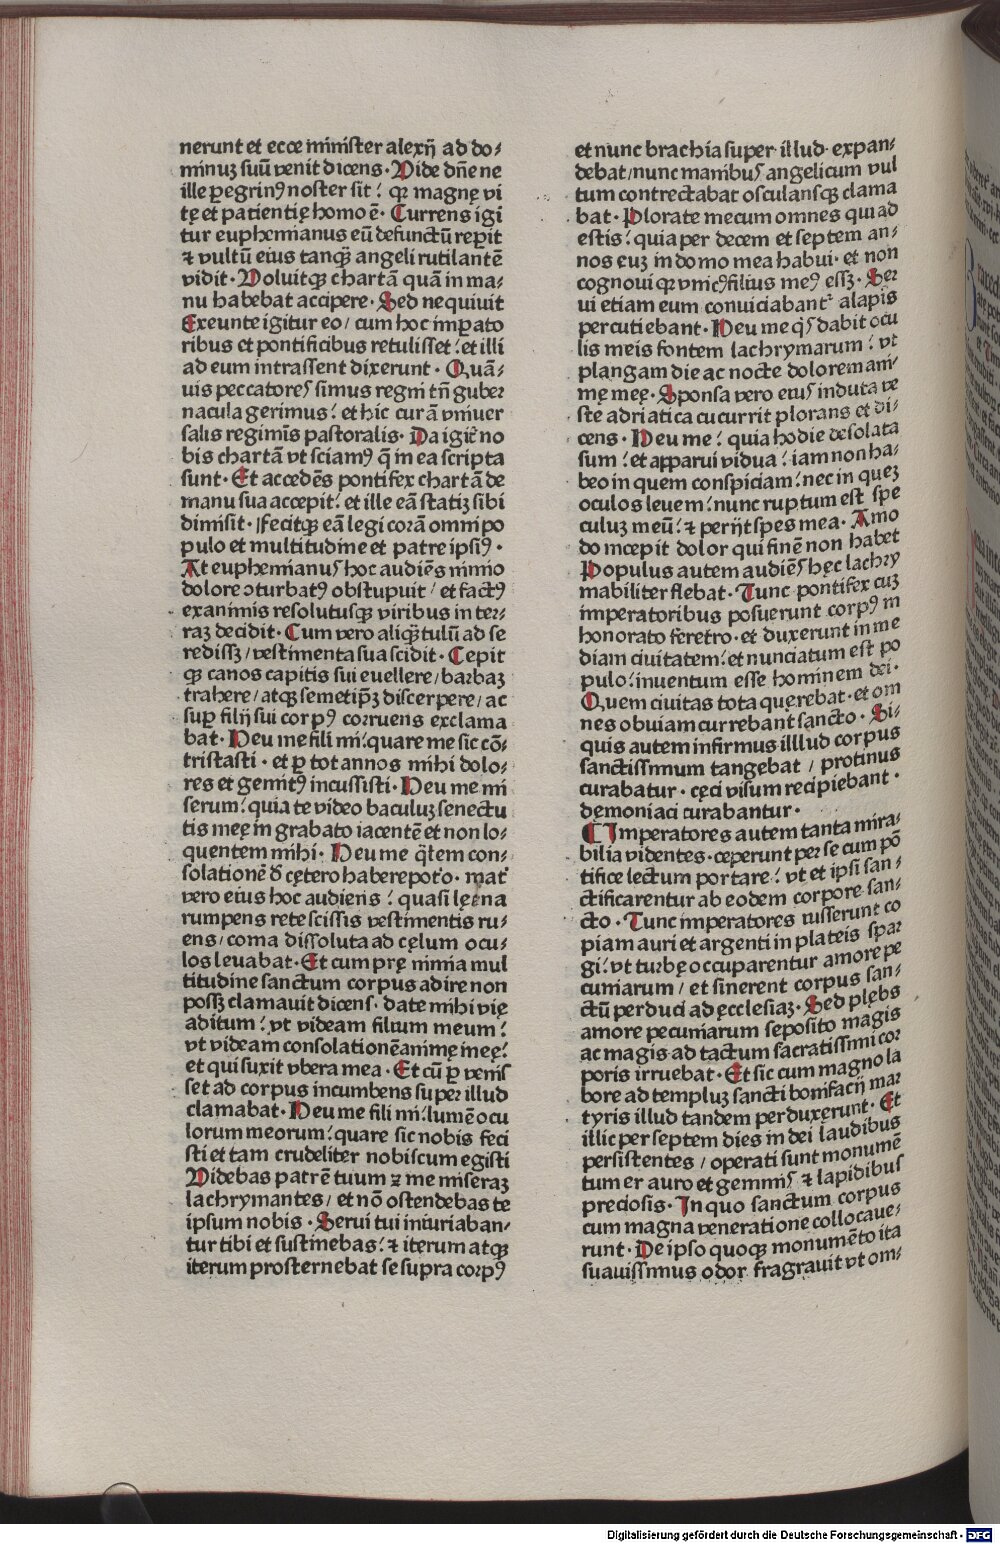 nerunt et ecce minister alexij ad do⸗
minuȝ suū venit dicens · Vide dn̄e ne
ille ꝑegrinꝰ noster sit ⁖ qꝫ magnę vi
tę et patientię homo ē · Currens igi
tur euphemianus eū defunctū reꝑit
⁊ vultū eius tanqꝫ angeli rutilantē
vidit · Voluitqꝫ chartā quā in ma⸗
nu habebat accipere · Sed nequiuit
Exeunte igitur eo / cum hoc imꝑato
ribus et pontificibus retulisset ⁖ et illi
ad eum intrassent dixerunt · Quā⸗
uis peccatores simus regni tn̄ guber
nacula gerimus ⁖ et hic curā vniuer
salis regimīs pastoralis · Da igit᷑ no
bis chartā vt sciamꝰ q̄ in ea scripta
sunt · Et accedēs pontifex chartā de
manu sua accepit ⁖ et ille eā statiȝ sibi
dimisit · Fecitqꝫ eā legi corā omni po
pulo et multitudine et patre ipsiꝰ ·
At euphemianus hoc audiēs nimio
dolore ↄturbatꝰ obstupuit / et factꝰ
exanimis resolutusqꝫ viribus in ter⸗
raȝ decidit · Cum vero aliqꝫtulū ad se
redissȝ / vestimenta sua scidit · Cepit
qꝫ canos capitis sui euellere / barbaȝ
trahere / atqꝫ semetipȝ discerpere / ac
suꝑ filij sui corpꝰ corruens exclama
bat · Heu me fili mi ⁖ quare me sic cō⸗
tristasti · et ꝑ tot annos mihi dolo⸗
res et gemitꝰ incussisti · Heu me mi
serum ⁖ quia te video baculuȝ senectu
tis meę in grabato iacentē et non lo⸗
quentem mihi · Heu me q̄lem con⸗
solationē d̄ cętero habere potᵒo · mat᷑
vero eius hoc audiens ⁖ quasi lęena
rumpens rete scissis vestimentis ru⸗
ens / coma dissoluta ad cęlum ocu⸗
los leuabat · Et cum prę nimia mul
titudine sanctum corpus adire non
possȝ clamauit dicens · date mihi vię
aditum ⁖ vt videam filium meum ⁖
vt videam consolationē animę meę ⁖
et qui suxit vbera mea · Et cū ꝑ venis
set ad corpus incumbens super illud
clamabat · Heu me fili mi ⁖ lumē ocu
lorum meorum ⁖ quare sic nobis feci
sti et tam crudeliter nobiscum egisti
Videbas patrē tuum ⁊ me miseraȝ
lachrymantes / et nō ostendebas te
ipsum nobis · Serui tui iniuriaban⸗
tur tibi et sustinebas ⁖ ⁊ iterum atqꝫ
iterum prosternebat se supra corpꝰ
et nunc brachia super illud · expan⸗
debat / nunc manibus angelicum vul
tum contrectabat osculansqꝫ clama
bat · Plorate mecum omnes qui ad
estis ⁖ quia per decem et septem an⸗
nos euȝ in domo mea habui · et non
cognoui qꝫ vnicꝰ filius meꝰ essȝ · Ser
ui etiam eum conuiciabant᷑ alapis
percutiebant · Heu me qͥs dabit ocu
lis meis fontem lachrymarum ⁖ vt
plangam die ac nocte dolorem ani⸗
mę meę · Sponsa vero eius induta ve
ste adriatica cucurrit plorans et di⸗
cens · Heu me ⁖ quia hodie desolata
sum ⁖ et apparui vidua ⁖ iam non ha⸗
beo in quem conspiciam ⁖ nec in queȝ
oculos leuem ⁖ nunc ruptum est spe
culuȝ meū ⁖ ⁊ perijt spes mea · Amo
do incepit dolor qui finē non habet
Populus autem audiēs hęc lachry
mabiliter flebat · Tunc pontifex cuȝ
imperatoribus posuerunt corpꝰ in
honorato feretro · et duxerunt in me
diam ciuitatem ⁖ et nunciatum est po
pulo ⁖ inuentum esse hominem dei ·
Quem ciuitas tota querebat · et om
nes obuiam currebant sancto · Si⸗
quis autem infirmus illlud corpus
sanctissimum tangebat / protinus
curabatur · cęci visum recipiebant ·
dęmoniaci curabantur ·
Imperatores autem tanta mira⸗
bilia videntes · cęperunt per se cum pō
tifice lectum portare ⁖ vt et ipsi san⸗
ctificarentur ab eodem corpore san⸗
cto · Tunc imperatores iusserunt co
piam auri et argenti in plateis spar
gi ⁖ vt turbę occuparentur amore pe
cuniarum / et sinerent corpus san⸗
ctū perduci ad ęcclesiaȝ · Sed plębs
amore pecuniarum seposito magis
ac magis ad tactum sacratissimi cor
poris irruebat · Et sic cum magno la
bore ad templuȝ sancti bonifacij mar
tyris illud tandem perduxęrunt · Et
illic per septem dies in dei laudibus
persistentes / operati sunt monumē
tum er auro et gemmis ⁊ lapidibus
preciosis · In quo sanctum corpus
cum magna veneratione collocaue⸗
runt · De ipso quoqꝫ monumēto ita
suauissimus odor fragrauit vt om⸗
Digitalisierung gefördert durch die Deutsche Forschungsgemeinschaft - DFG